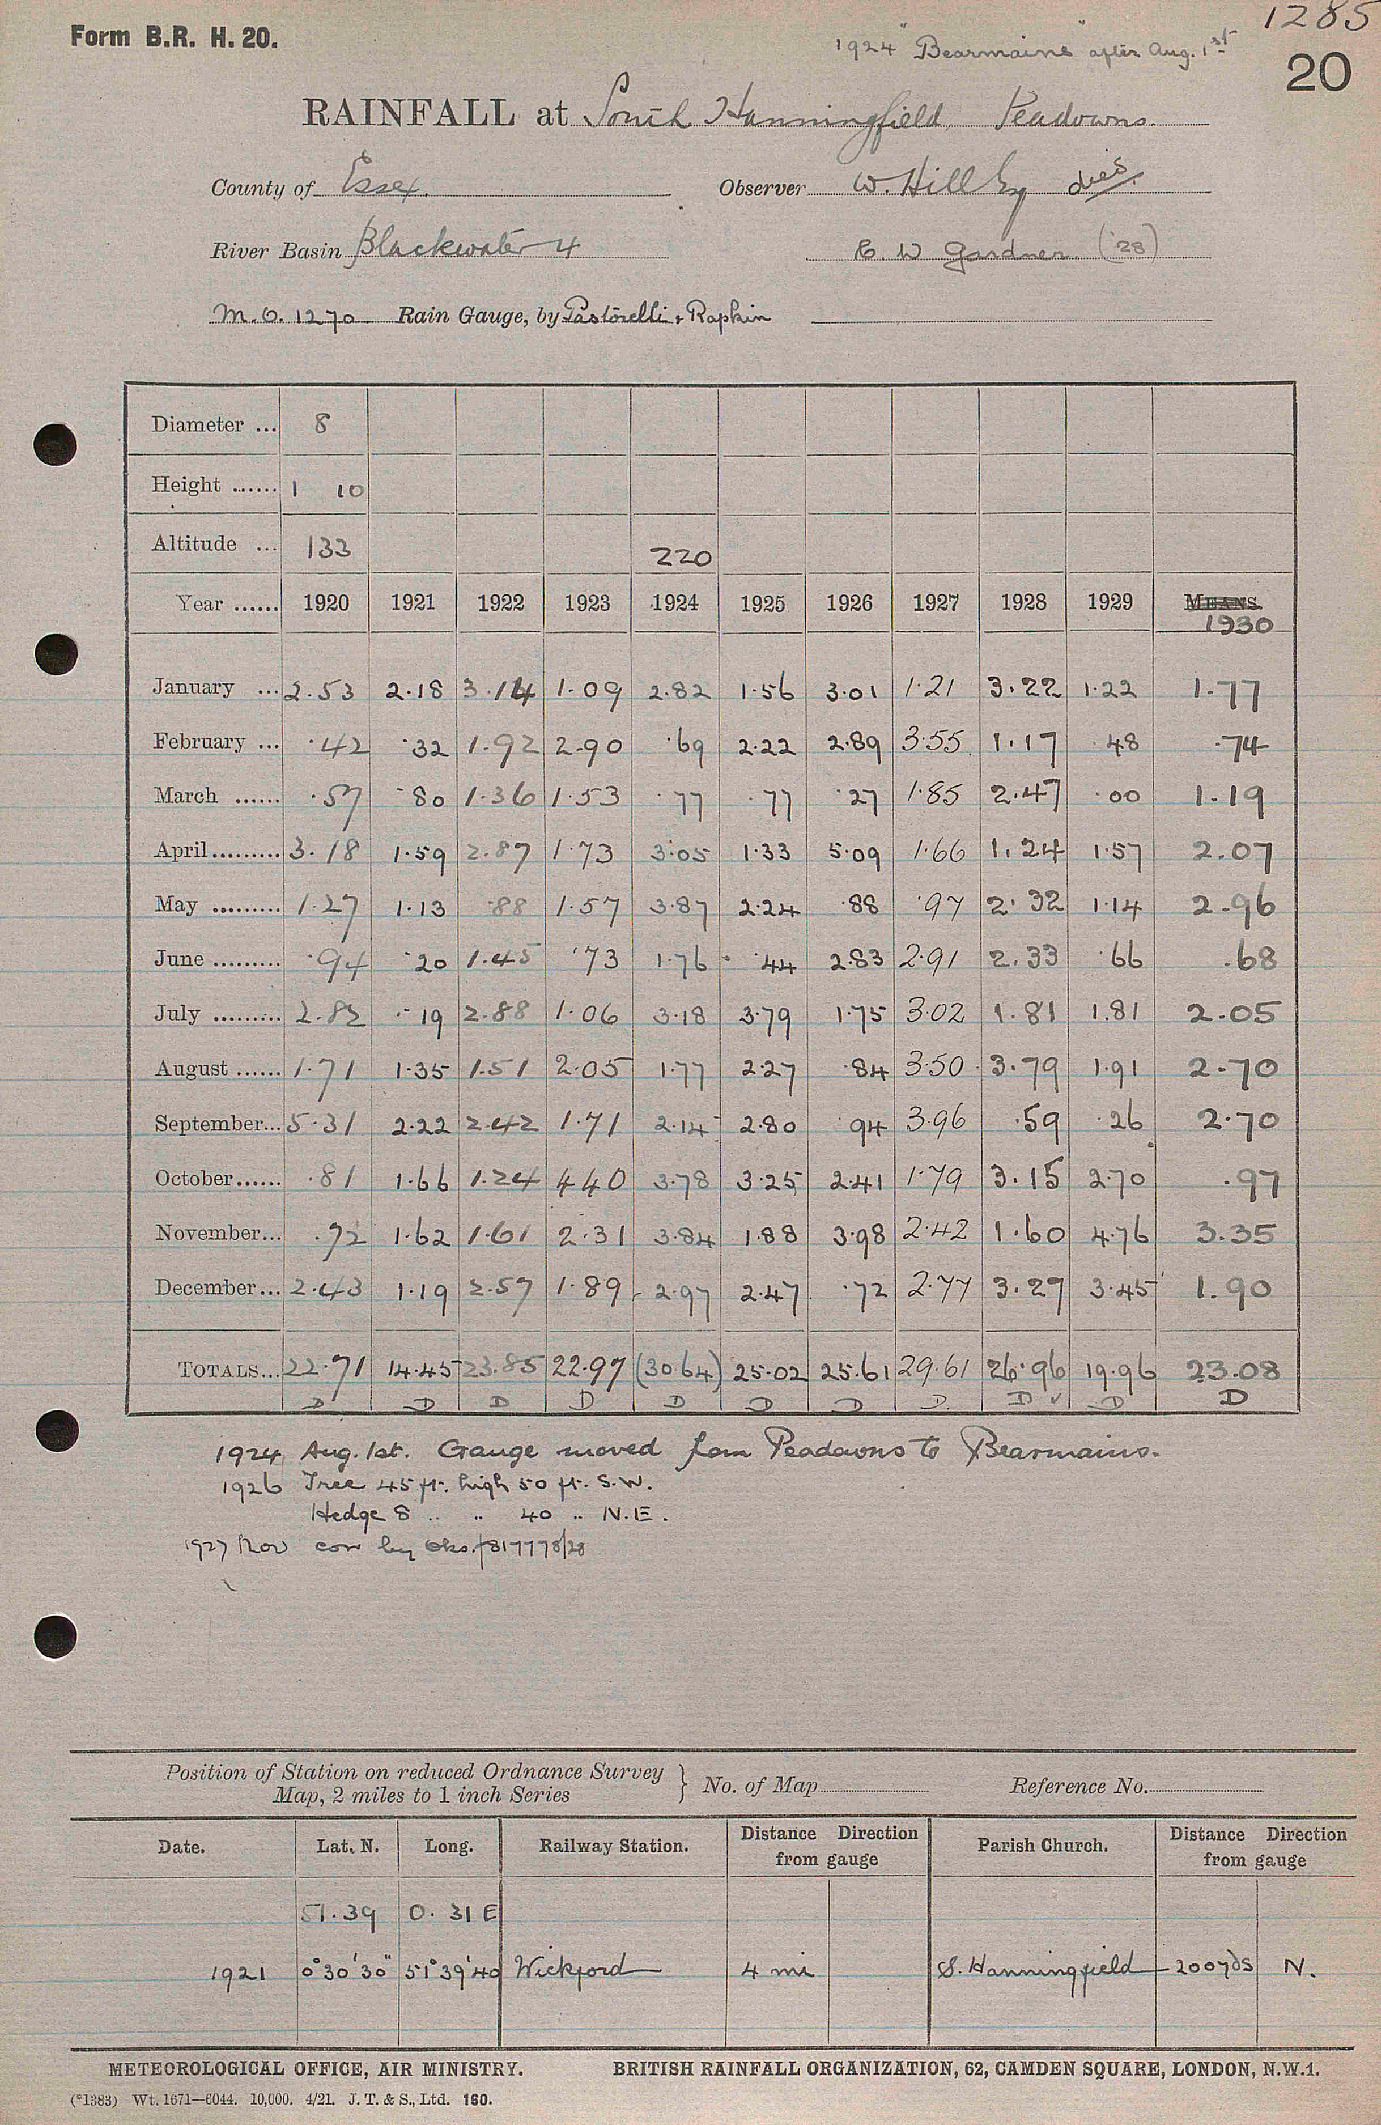 Form B.R. H. 20.
1285
1924 "Bearmains" after Aug. 1st
20
RAINFALL at South Hanningfield Peadowns
County of Essex Observer W. Hill Esq dec'd.
River Basin Blackwater 4 E. W. Gardner ('28)
M.O. 1270 Rain Gauge, by Pastorelli & Rapkin
Diameter ... 8
Height ...... 1 10
Altitude ... 133 220
Year ...... 1920 1921 1922 1923 1924 1925 1926 1927 1928 1929 MEANS
1930
January ... 2.53 2.18 3.14 1.09 2.82 1.56 3.01 1.21 3.22 1.22 1.77
February ... .42 .32 1.92 2.90 .69 2.22 2.89 3.55 1.17 .48 .74
March ...... .57 .80 1.36 1.53 .77 .77 .27 1.85 2.47 .00 1.19
April ......... 3.18 1.59 2.87 1.73 3.05 1.33 5.09 1.66 1.24 1.57 2.07
May ......... 1.27 1.13 .88 1.57 3.87 2.24 .88 .97 2.32 1.14 2.96
June ......... .94 .20 1.45 .73 1.76 .44 2.83 2.91 2.33 .66 .68
July ......... 2.82 .19 2.88 1.06 3.18 3.79 1.75 3.02 1.81 1.81 2.05
August ...... 1.71 1.35 1.51 2.05 1.77 2.27 .84 3.50 3.79 1.91 2.70
September... 5.31 2.22 2.42 1.71 2.14 2.80 .94 3.96 .59 .26 2.70
October...... .81 1.66 1.24 4.40 3.78 3.25 2.41 1.79 3.15 2.70 .97
November... .72 1.62 1.61 2.31 3.84 1.88 3.98 2.42 1.60 4.76 3.35
December... 2.43 1.19 2.57 1.89 2.97 2.47 .72 2.77 3.27 3.45 1.90
TOTALS... 22.71 14.45 23.85 22.97 (30.64) 25.02 25.61 29.61 26.96 19.96 23.08
D D D D D D D D D ✓ D D
1924 Aug. 1st. Gauge moved from Peadowns to Bearmains.
1926 Tree 45 ft. high 50 ft. S.W.
Hedge 8 " " 40 " N.E.
1927 Nov corr by obs. 817778/28
Position of Station on reduced Ordnance Survey
Map, 2 miles to 1 inch Series } No. of Map Reference No.
Date. Lat. N. Long. Railway Station. Distance Direction from gauge Parish Church. Distance Direction from gauge
51.39 0.31 E
1921 0°30'30" 51°39'40 Wickford 4 mi S. Hanningfield 200 yds N.
METEOROLOGICAL OFFICE, AIR MINISTRY. BRITISH RAINFALL ORGANIZATION, 62, CAMDEN SQUARE, LONDON, N.W.1.
(*1383) Wt. 1671—6044. 10,000. 4/21. J. T. & S., Ltd. 160.